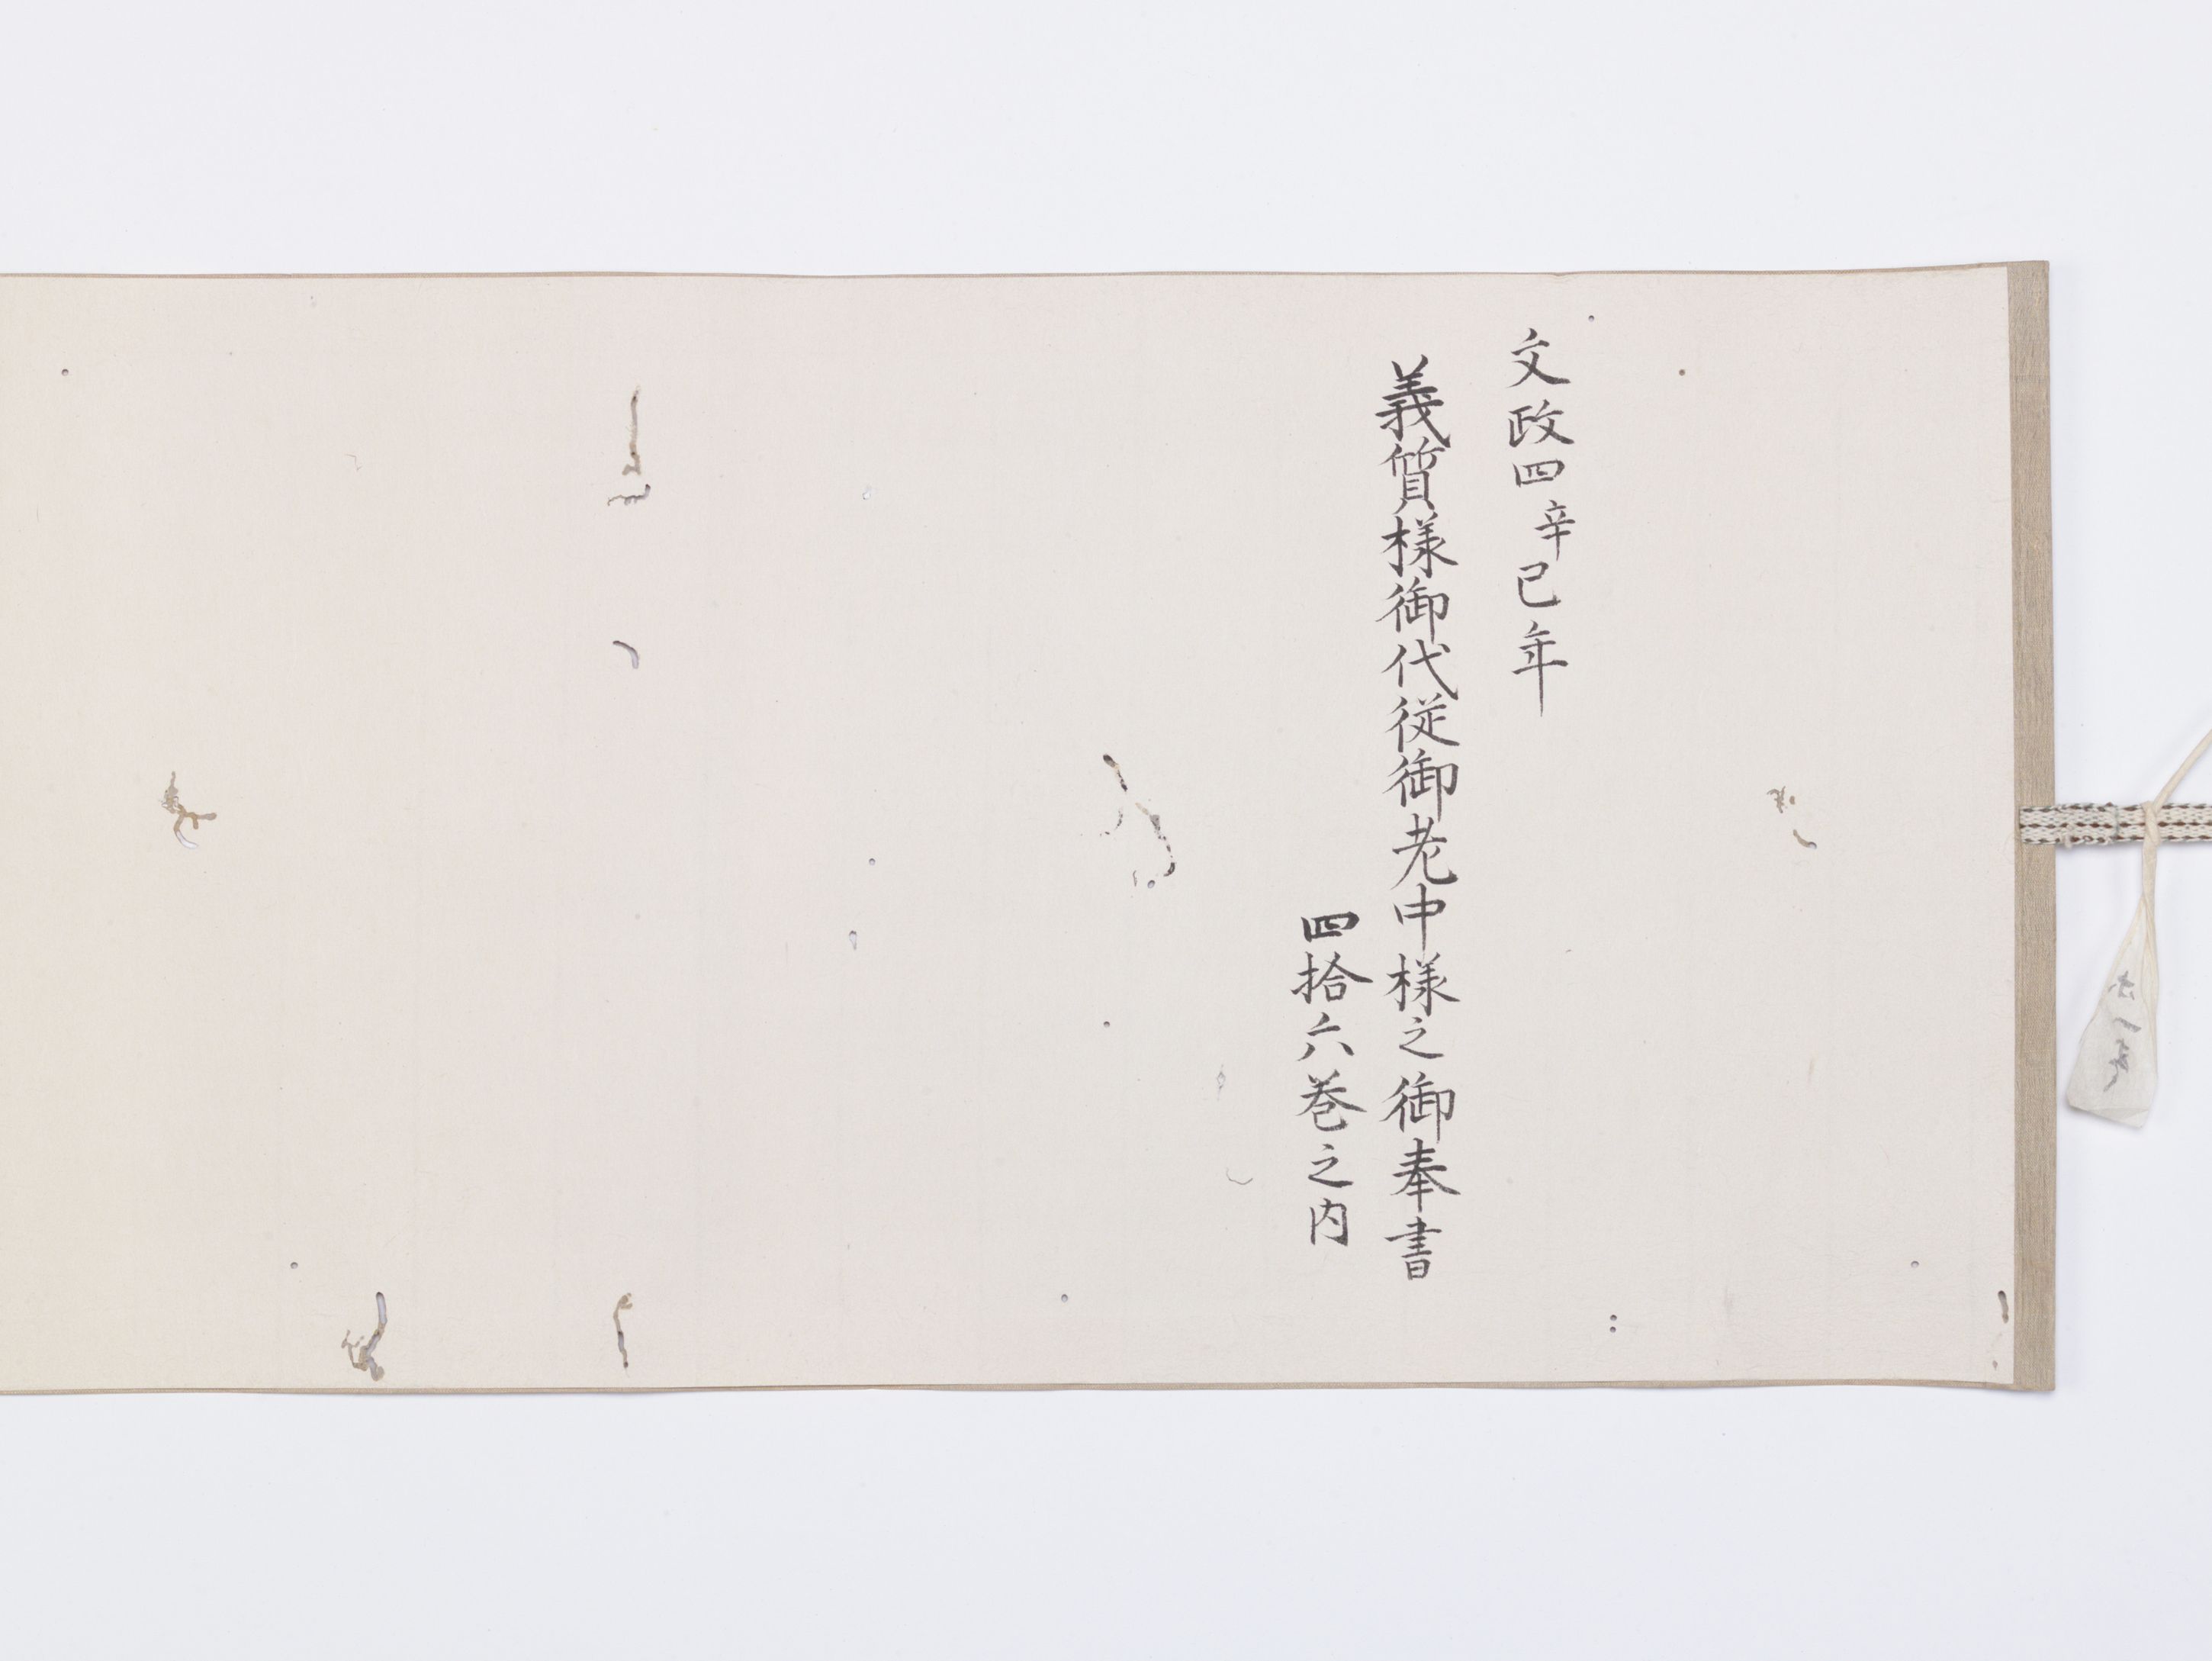 文政四辛巳年
義質様御代従御老中様之御奉書
四拾六巻之内